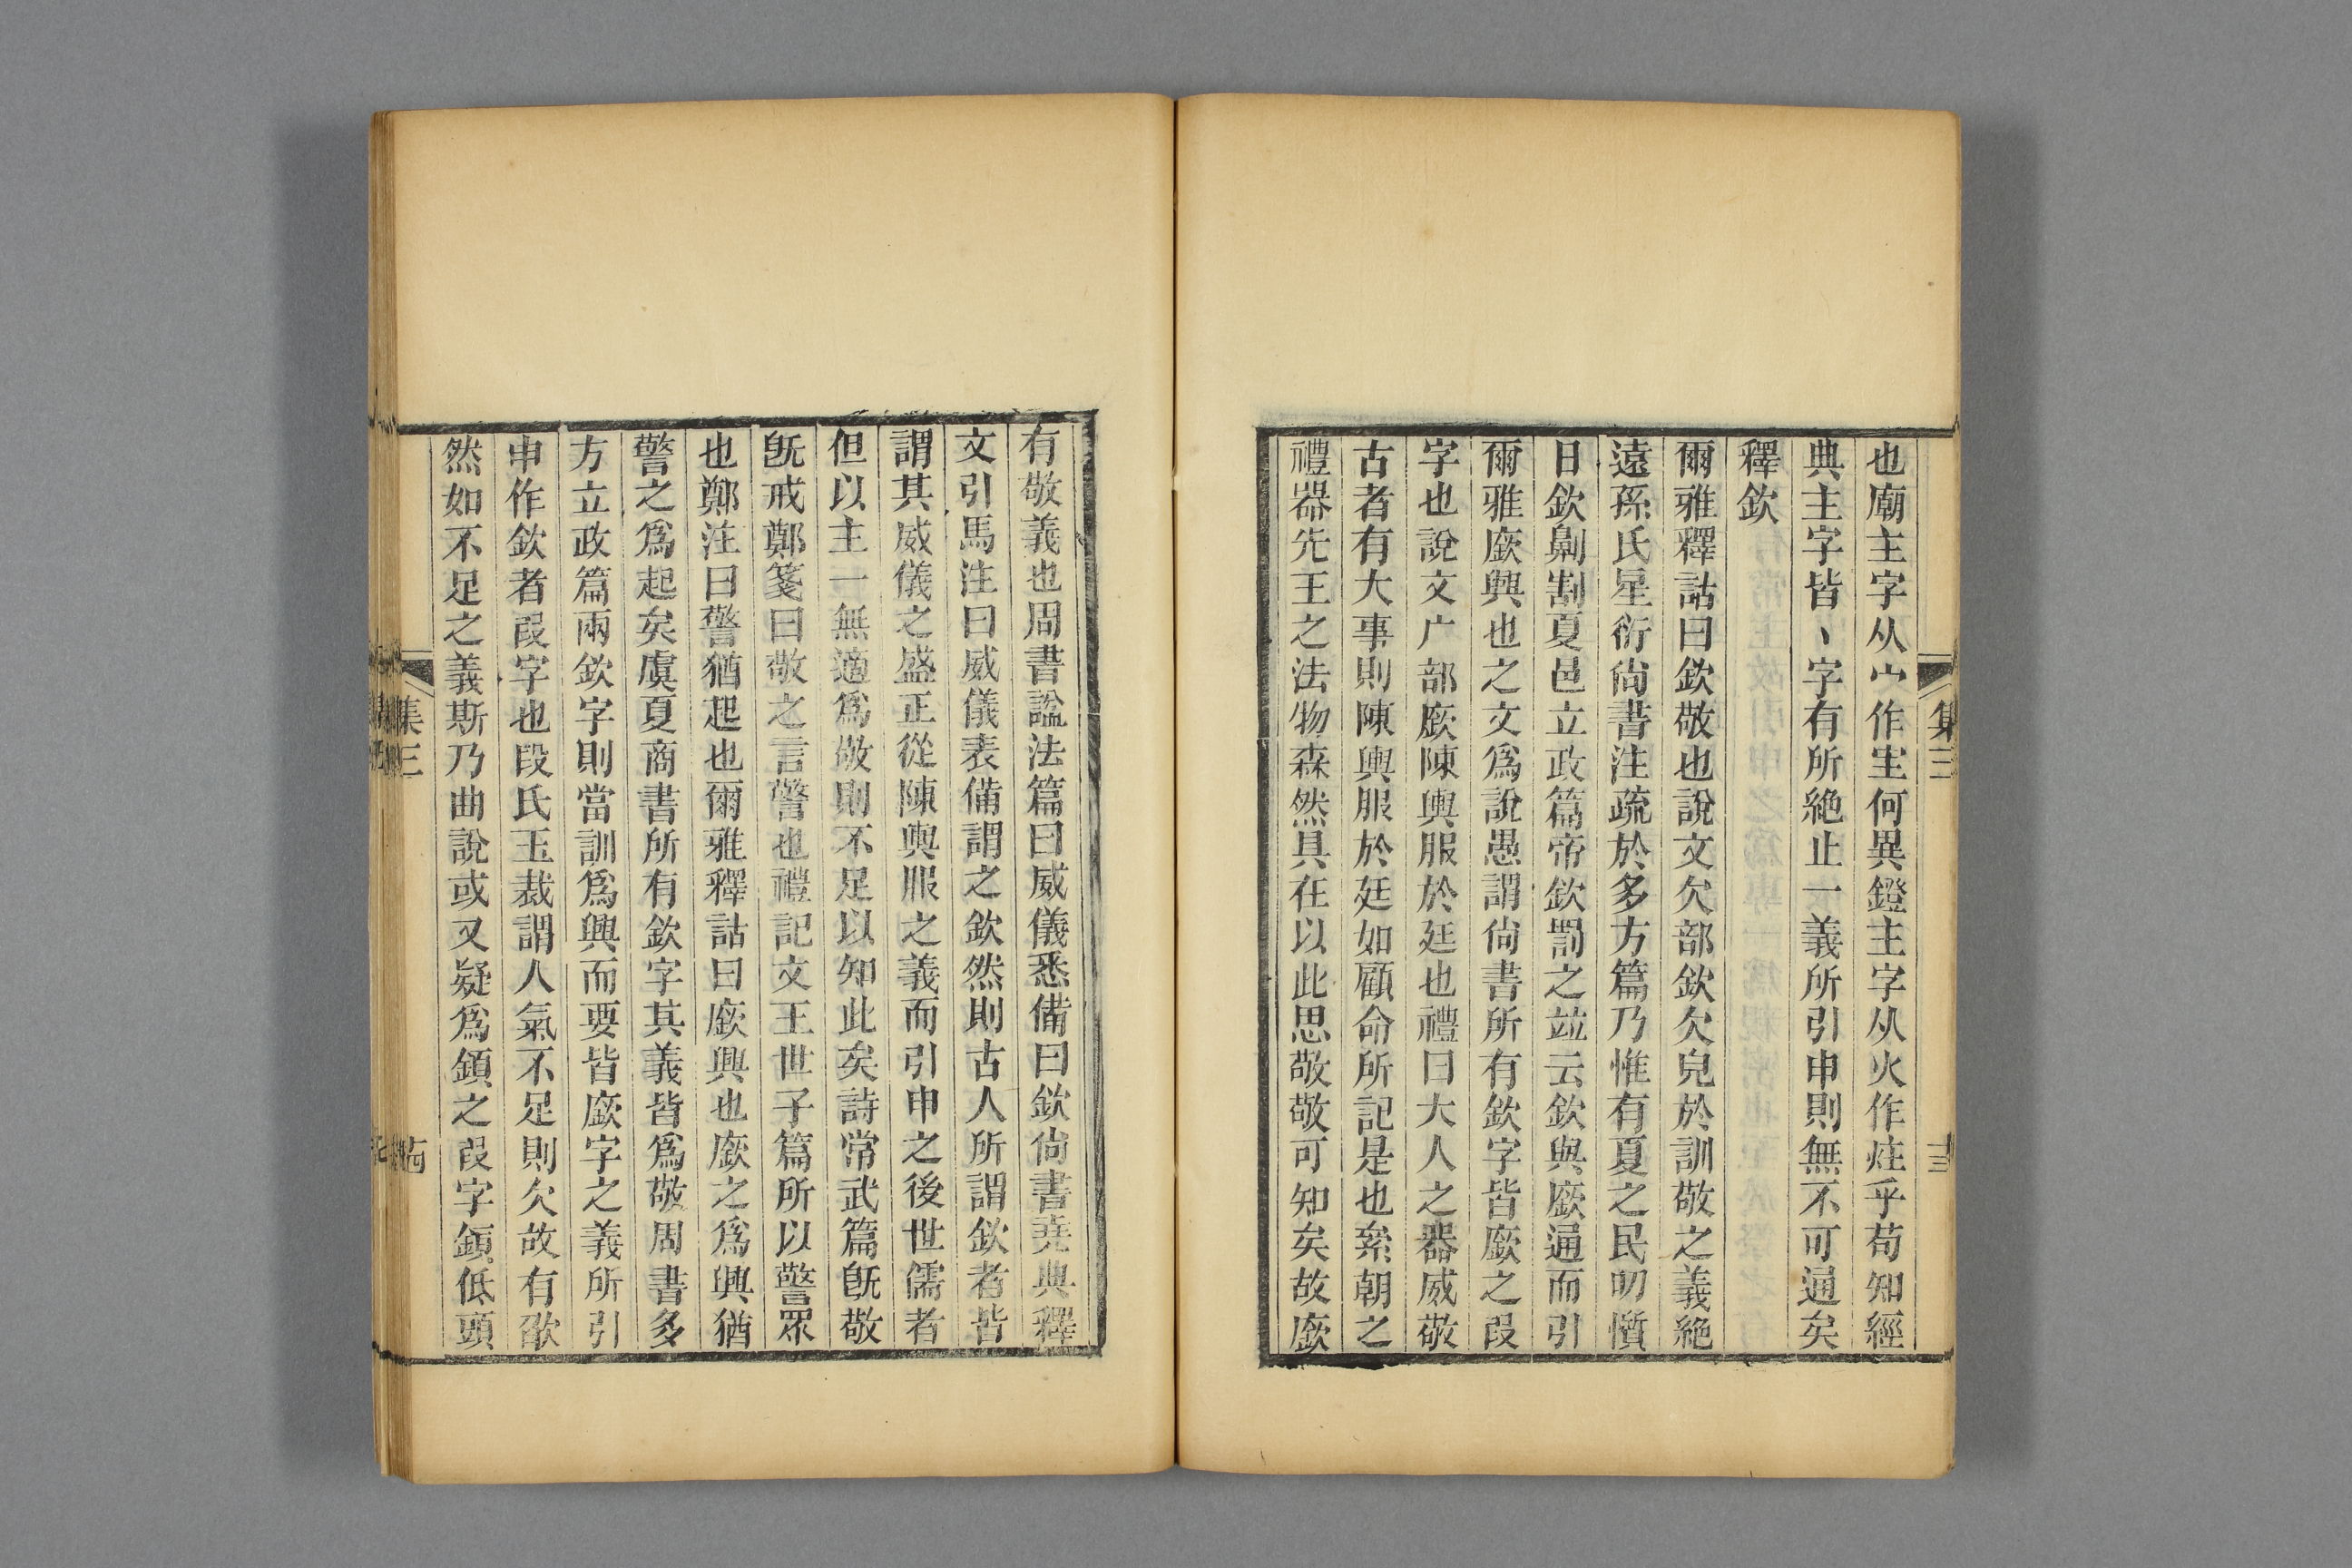 也廟主字从宀作宔何異鐙主字从火作炷乎苟知經
典主字皆丶字有所絶止一義所引申則無不可通矣
釋欽
爾雅釋詁曰欽敬也說文欠部欽欠皃於訓敬之義絶
遠孫氏星衍尙書注疏於多方篇乃惟有夏之民叨懫
日欽劓割夏邑立政篇帝欽罰之竝云欽與廞通而引
爾雅廞興也之文爲說愚謂尙書所有欽字皆廞之叚
字也說文广部廞陳輿服於廷也禮曰大人之器威敬
古者有大事則陳輿服於廷如顧命所記是也衆朝之
禮器先王之法物森然具在以此思敬敬可知矣故廞
集三
十三
有敬義也周書諡法篇曰威儀悉備曰欽尙書堯典釋
文引馬注曰威儀表備謂之欽然則古人所謂欽者皆
謂其威儀之盛正從陳輿服之義而引申之後世儒者
但以主一無適爲敬則不足以知此矣詩常武篇旣敬
旣戒鄭箋曰敬之言警也禮記文王世子篇所以警眾
也鄭注曰警猶起也爾雅釋詁曰廞興也廞之爲興猶
警之爲起矣虞夏商書所有欽字其義皆爲敬周書多
方立政篇兩欽字則當訓爲興而要皆廞字之義所引
申作欽者叚字也段氏玉裁謂人氣不足則欠故有欿
然如不足之義斯乃曲說或又疑爲顉之叚字顉低頭
集三